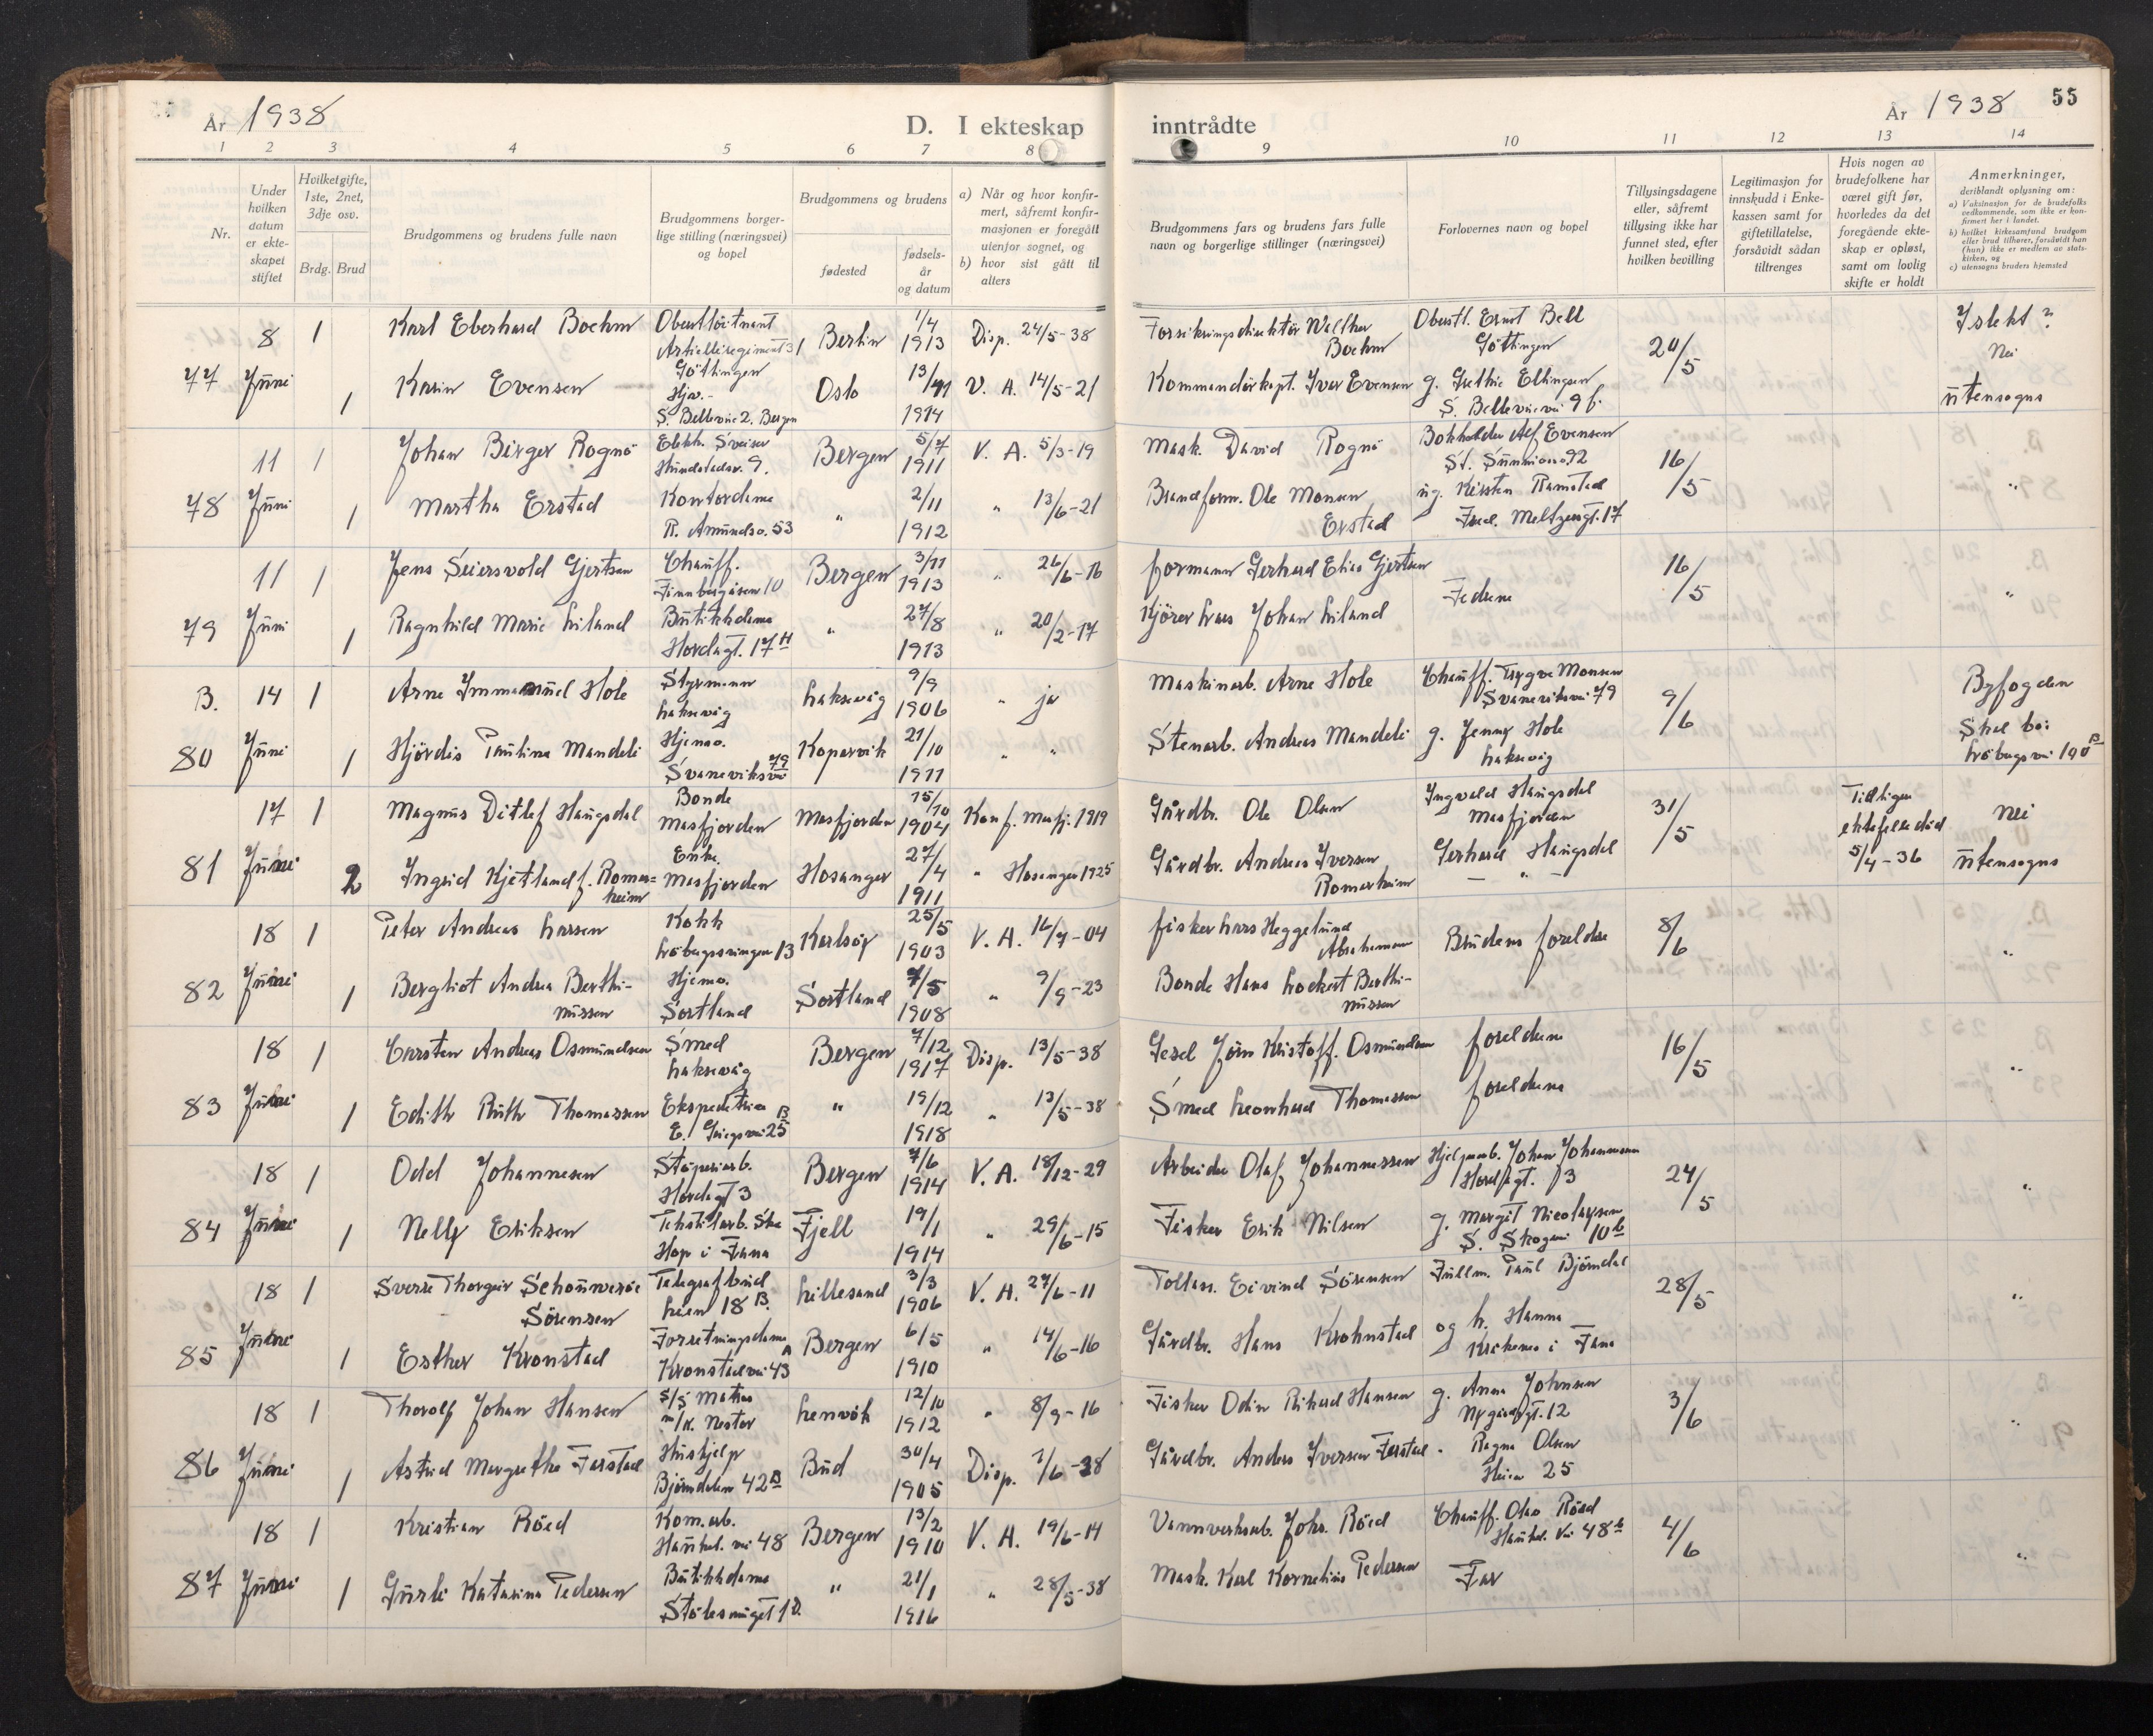 År 1938
D. I ekteskap
inntrådte
År 1938
55
1 2 3 4 5 6 7 8
9 10 11 12 13 14
Nr.
Under hvilken datum er ekteskapet stiftet
Hvilket gifte, 1ste, 2net, 3dje osv.
Brdg. Brud
Brudgommens og brudens fulle navn
Brudgommens borgerlige stilling (næringsvei) og bopel
Brudgommens og brudens
fødested
fødselsår og datum
a) Når og hvor konfirmert, såfremt konfirmasjonen er foregått utenfor sognet, og
b) hvor sist gått til alters
Brudgommens fars og brudens fars fulle navn og borgerlige stillinger (næringsvei)
Forlovernes navn og bopel
Tillysingsdagene eller, såfremt tillysing ikke har funnet sted, efter hvilken bevilling
Legitimasjon for innskudd i Enkekassen samt for giftetillatelse, forsåvidt sådan tiltrenges
Hvis nogen av brudefolkene har været gift før, hvorledes da det foregående ekteskap er opløst, samt om lovlig skifte er holdt
Anmerkninger,
deriblandt oplysning om:
a) Vaksinasjon for de brudefolks vedkommende, som ikke er konfirmert her i landet.
b) hvilket kirkesamfund brudgom eller brud tilhører, forsåvidt han (hun) ikke er medlem av statskirken, og
c) utensogns bruders hjemsted
77
8 Juni
1
Karl Eberhard Boehm
Oberstlöitnant
Artilleriregiment 31
Göttingen
Berlin
1/4 1913
Disp. 24/5-38
Forsikringsdirektör Walther Boehm
Oberstl. Ernst Bell
Göttingen
20/5
I slekt?
Nei
utensogns
1
Karin Evensen
Hjv.-
S. Bellevue 2. Bergen
Oslo
1914
V. A. 14/5-21
Kommandörkapt. Ivar Evensen
g. Grethe Ellingsen
78
11 Juni
1
Johan Birger Rognö
Elekk. Sveiser
Bergen
5/7 1911
V. A. 5/3-19
Mask. David Rognö
Bokholder Alf Evensen
16/5
"
1
Martha Erstad
Kontordame
R. Amundsv. 53
"
2/11 1912
" 13/6-21
Brandform. Ole Monsen Erstad
og. Kirsten Ramstad
Fred. Meltzersgt. 17
79
11 Juni
1
Jens Seiersvold Gjertsen
Chauff.
Finnbergåsen 10
Bergen
3/11 1913
" 26/6-16
formann Gerhard Elias Gjertsen
Fedrene
16/5
"
1
Ragnhild Marie Liland
Butikkdame
Hordagt. 17 H
"
27/8 1913
" 20/2-17
Kjörer Lars Johan Liland
B.
80
14 Juni
1
Arne Immanuel Hole
Styrmann
Laksevåg
Laksevåg
9/9 1906
" ja
Maskinarb. Arne Hole
Chauff. Trygve Monsen
Svaneviksvei 79
9/6
Byfogden
Skal bo:
Lröbergsvei 190 B
1
Hjördis Paulina Mandeli
Hjemv.
Svaneviksvei 79
Kopervik
21/10 1911
" "
Stenarb. Andreas Mandeli
g. Jenny Hole
Laksevåg
81
17 Juni
1
Magnus Ditlef Haugsdal
Bonde
Masfjorden
Masfjorden
15/10 1904
Konf. Masfj. 1919
Gårdbr. Ole Olsen
Ingvald Haugsdal
Masfjorden
31/5
Tidligere
ektefelle död
5/4-36
nei
utensogns
2
Ingrid Kjetland f. Romarheim
Enke.
Masfjorden
Hosanger
27/4 1911
" Hosanger 1925
Gårdbr. Andreas Iversen Romarheim
Gerhard Haugsdal
- " -
82
18 Juni
1
Peter Andreas Larsen
Kokk
Karlsöy
25/5 1903
V. A. 16/7-04
fisker Lars Heggelund Abrahamsen
Brudens foreldre
8/6
"
1
Bergliot Andrea Berthinussen
Hjemv.
Sortland
Sortland
7/5 1908
" 9/9-23
Bonde Hans Lockert Berthinussen
83
18 Juni
1
Carsten Andreas Osmundsen
Smed
Laksevåg
Bergen
7/12 1917
Disp. 13/5-38
Gesel Jörn Kristoff. Osmundsen
foreldrene
16/5
"
1
Edith Ruth Thomassen
Ekspeditrise
E. Griegsvei 25 B
"
19/12 1918
" 13/5-38
Smed Leonhard Thomassen
foreldrene
84
18 Juni
1
Odd Johannesen
Stöperiarb.
Hordagt 3
Bergen
7/6 1914
V. A. 18/12-29
Arbeider Olaf Johannessen
Hjelpearb. Johan Johannessen
Hordagt. 13
24/5
"
1
Nelly Eriksen
Tekstilarb. ske
Hop i Fana
Fjell
19/1 1914
" 29/6-15
Fisker Erik Nilsen
g. Margit Nicolaysen
S. Skogvei 10 b
85
18 Juni
1
Sverre Thorgeir Schounveröe Sörensen
Telegrafbud
Leen 18 B.
Lillesand
3/3 1906
V. A. 27/6-11
Tollass. Eivind Sörensen
Fullm. Paul Björndal
28/5
"
1
Esther Kronstad
Forretningsdame
Kronstadvei 43 A
Bergen
6/5 1910
" 14/6-16
Gårdbr. Hans Krohnstad
og h. Hanna
Kråkenes i Fana
86
18 Juni
1
Thorolf Johan Hansen
S/S Matias
m/k. Nestor
Lenvik
12/10 1912
" 8/9-16
Fisker Odin Rikard Hansen
g. Anna Johnsen
Nygårdsgt. 12
3/6
"
1
Astrid Margrethe Farstad
Hushjelp
Björndalen 42 B
Bud
30/4 1905
Disp. 7/6-38
Gårdbr. Anders Iversen Farstad
Ragna Olsen
Heien 25
87
18 Juni
1
Kristian Röed
Kom.arb.
Haukel. vei 48
Bergen
13/2 1910
V. A. 19/6-14
Vannverksarb. Johs. Röed
Chauff. Olav Röed
Haukel. Vei 48 b
4/6
"
1
Gurli Katarina Pedersen
Butikkdame
Stölesmuget 1 D.
"
21/1 1916
" 28/5-38
Mask. Karl Kornelius Pedersen
Far